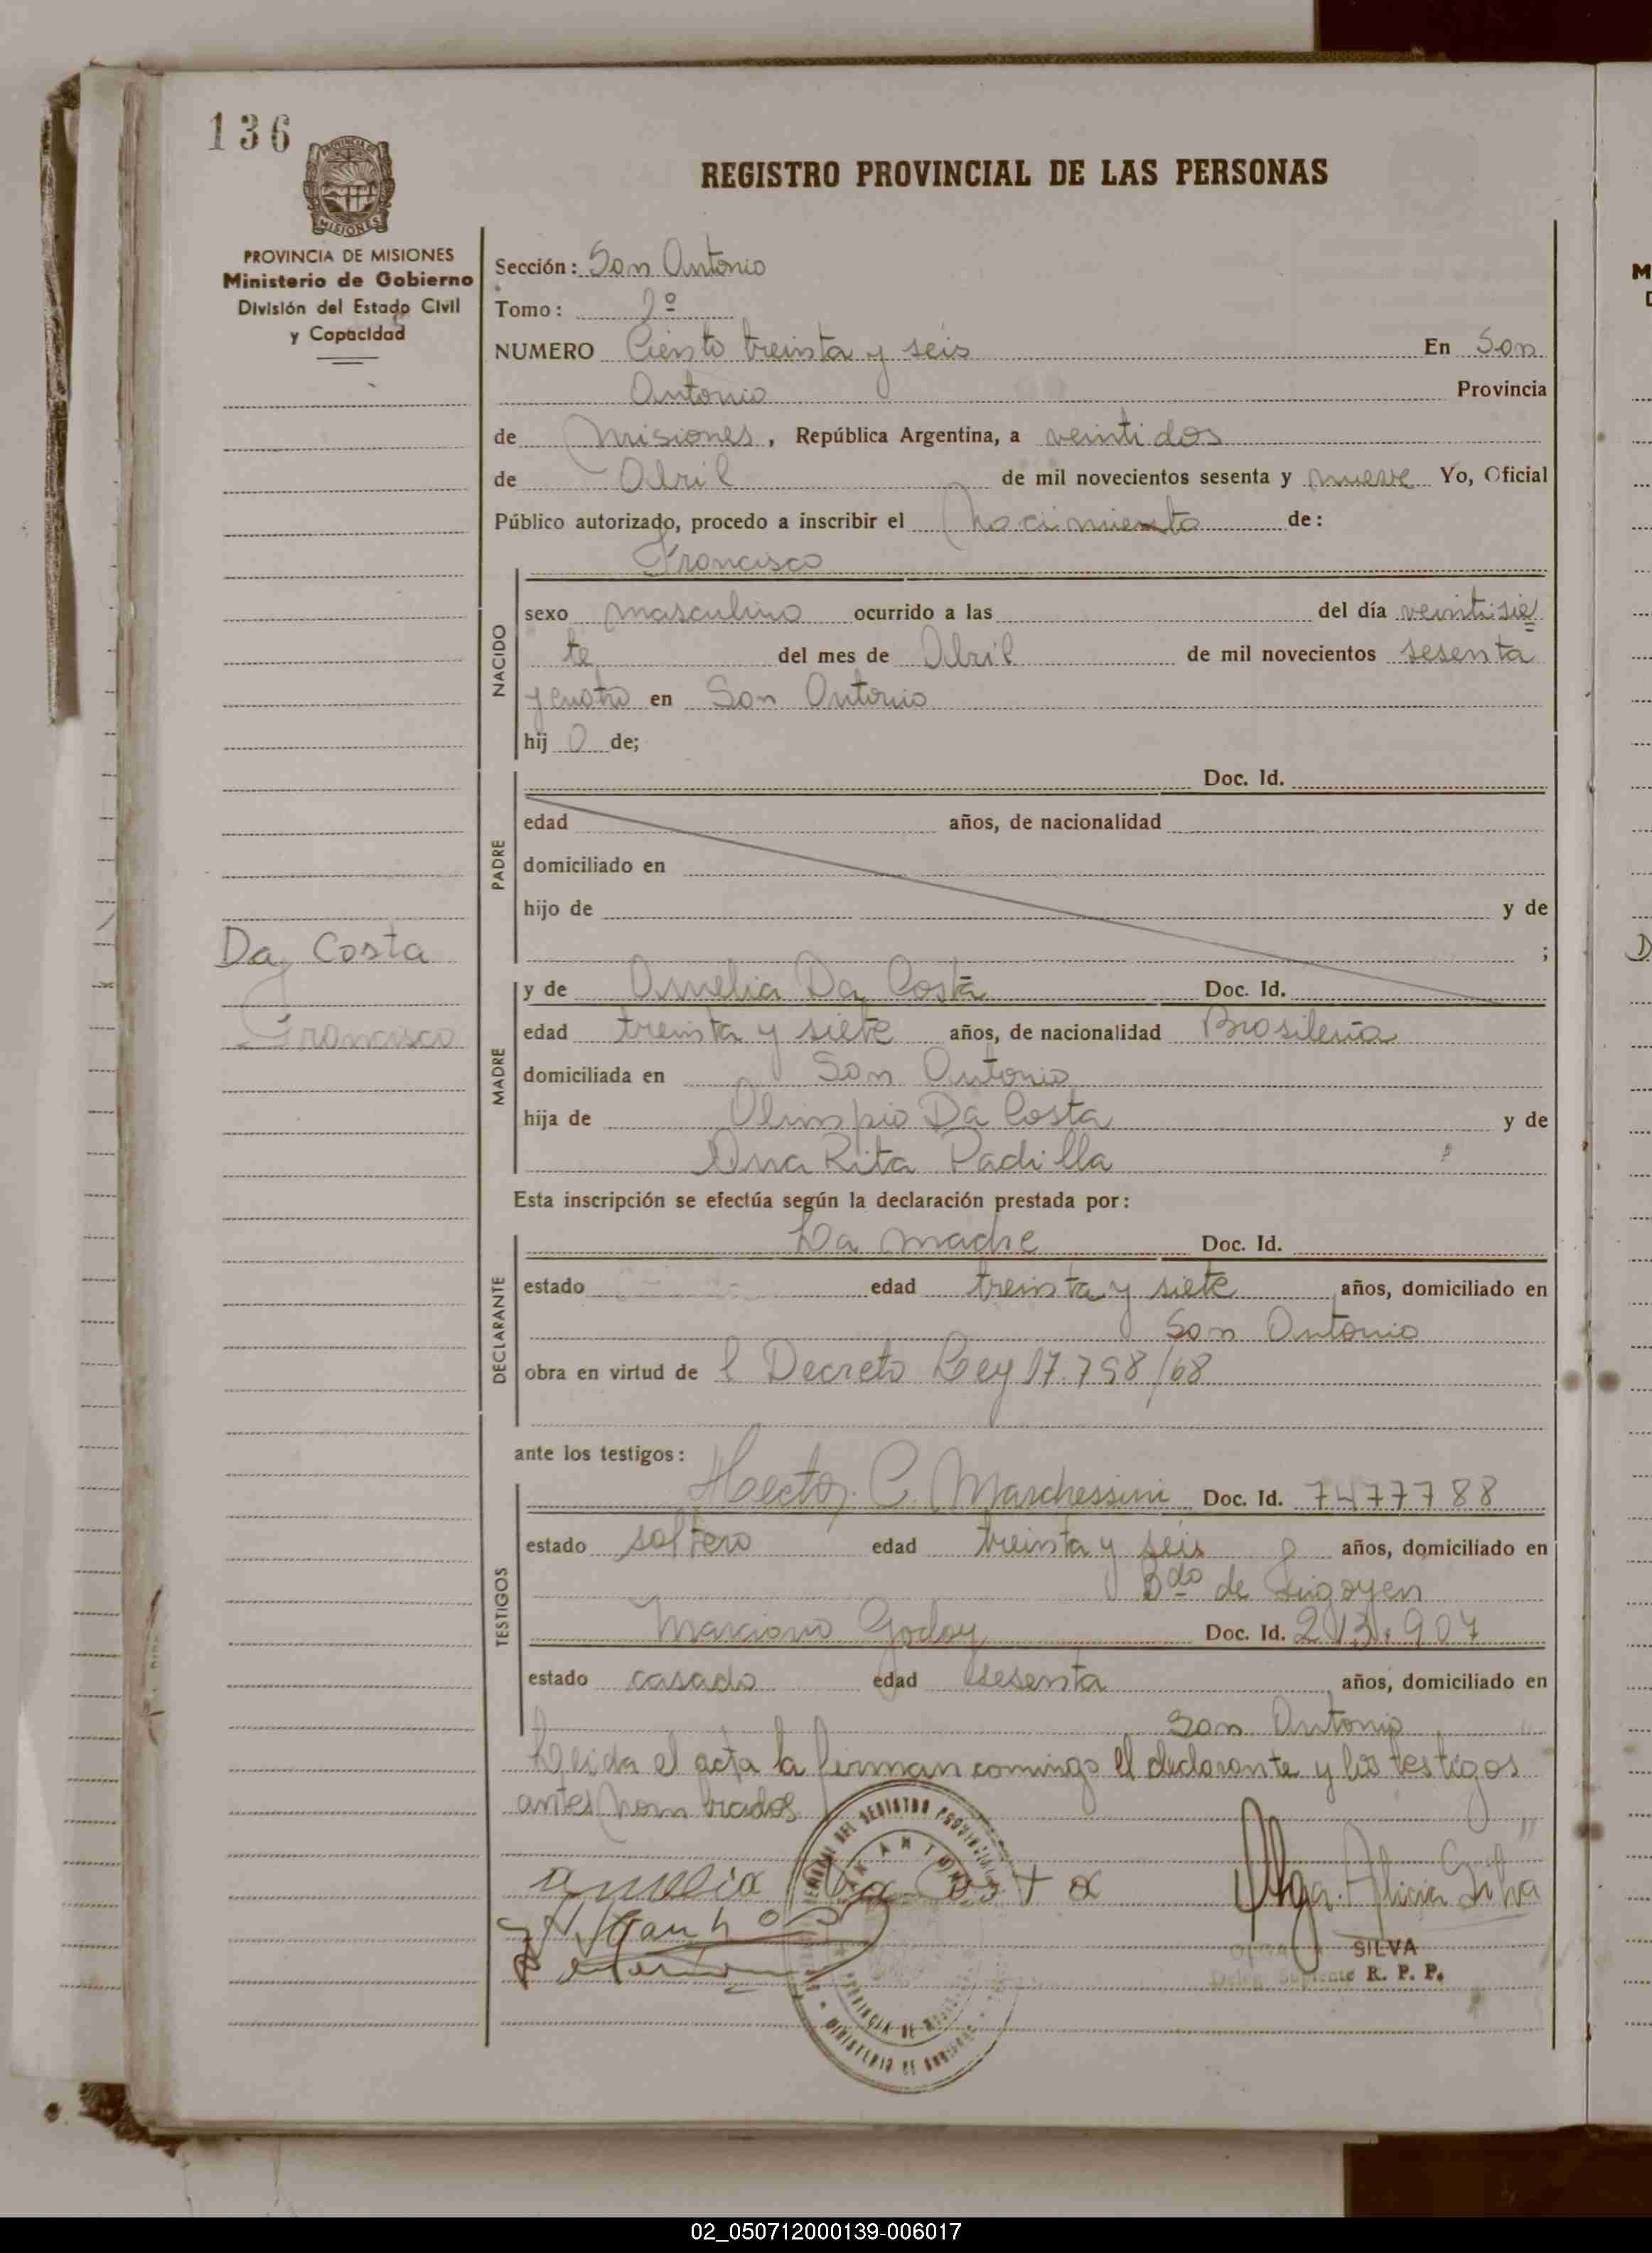 136
PROVINCIA DE MISIONES
Ministerio de Gobierno
División del Estado Civil
y Capacidad
REGISTRO PROVINCIAL DE LAS PERSONAS
Sección: San Antonio
Tomo: 2º
NUMERO Ciento treinta y seis En San
Antonio Provincia
de Misiones, República Argentina, a veintidos
de Abril de mil novecientos sesenta y nueve Yo, Oficial
Público autorizado, procedo a inscribir el Nacimiento de:
Francisco
NACIDO
sexo masculino ocurrido a las del día veintisie
te del mes de Abril de mil novecientos sesenta
y cuatro en San Antonio
hij o de;
PADRE
Doc. Id.
edad años, de nacionalidad
domiciliado en
hijo de y de
;
Da Costa
Francisco
MADRE
y de Amelia Da Costa Doc. Id.
edad treinta y siete años, de nacionalidad Brasileña
domiciliada en San Antonio
hija de Olimpio Da Costa y de
Ana Rita Padilla
Esta inscripción se efectúa según la declaración prestada por:
DECLARANTE
La madre Doc. Id.
estado edad treinta y siete años, domiciliado en
San Antonio
obra en virtud de l Decreto Ley 17.798/68
ante los testigos:
TESTIGOS
Hector C. Marchessini Doc. Id. 7477788
estado soltero edad treinta y seis años, domiciliado en
Bdo de Irigoyen
Marciano Godoy Doc. Id.
estado casado edad sesenta años, domiciliado en
San Antonio
Leida el acta la firman comingo el declarante y los testigos
antes nombrados
amelia Da Costa
Olga Alicia Silva
SILVA
Deleg. Suplente R. P. P.
02_050712000139-006017